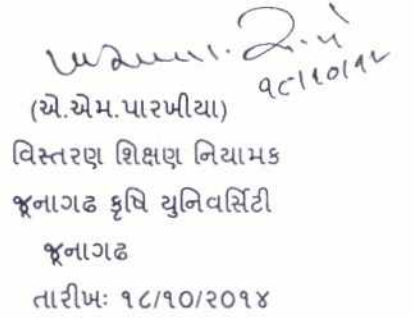 ૧૮/૧૦/૧૪
(એ.એમ.પારખીયા)
વિસ્તરણ શિક્ષણ નિયામક
જૂનાગઢ કૃષિ યુનિવર્સિટી
જૂનાગઢ
તારીખઃ ૧૮/૧૦/૨૦૧૪